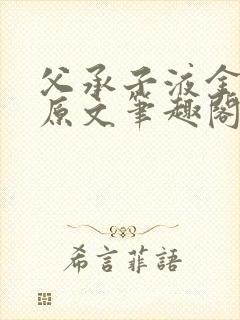 父承子液全
原文笔趣阁
希言菲語